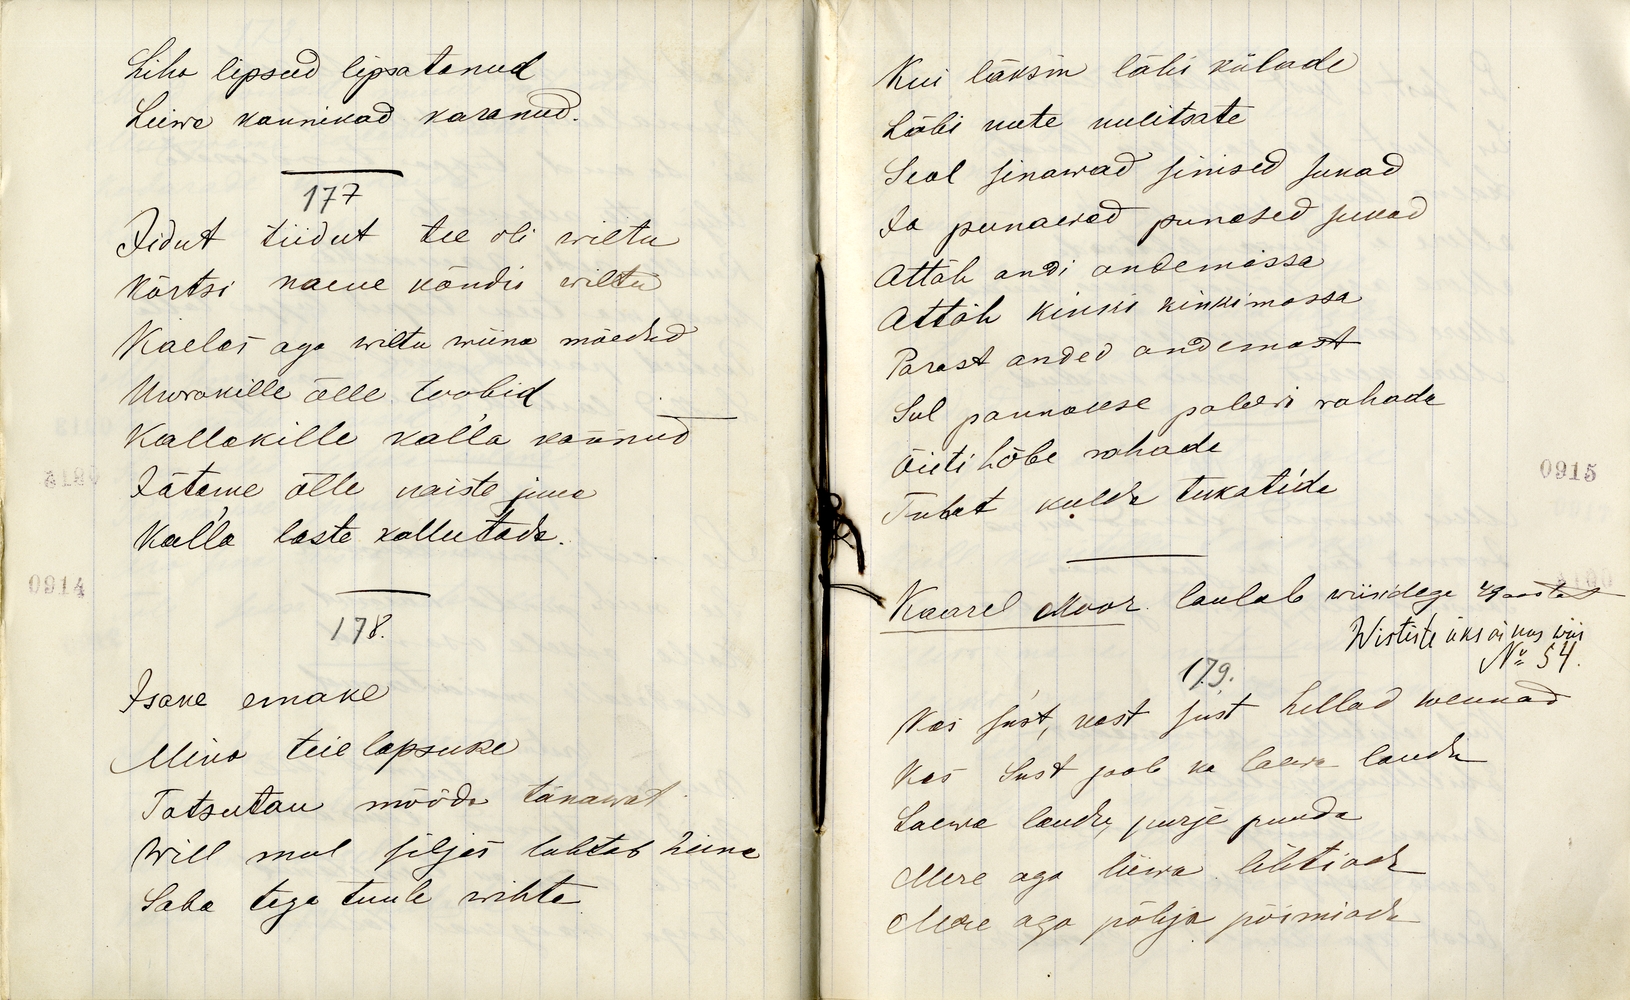 Liha lipsud lipsatanud
Leiwa kannikad karanud.
177
Tiidut tiidut tee oli wiltu
Kõrtsi naene kõndis wiltu
Kaelas aga wiltu wiina mõedud
Uwrakille õlle toobid
Kallakille kalla kannud
Jätame õlle naiste juua
Kalla laste kallutada.
178.
Isake emake
Mina teie lapsuke
Tatsutan mööda tänawat
Will mul siljas lahtab heina
Saba tega tuule wihta
0914
Kui läksin läbi külade
Läbi uute uulitsate
Seal sinawad sinised sukad
Ja punawad punased sukad
Attäh andi andemassa
Attäh kinki kinkimassa
Parast anded andemast
Sul pannakse paberi rahada
Õieti hõbe rahade
Tuhat kulda tukatida
0915
Kaarel Moor laulab wiisidega
Wististe üks ainus wiis
№ 54.
179.
Kas sust, kast sust hellad wennad
Kas Sust saab ka laewa lauda
Laewa lauda, purje puuda
Mere aga liiwa lihtiada
Mere aga põhja põimiada